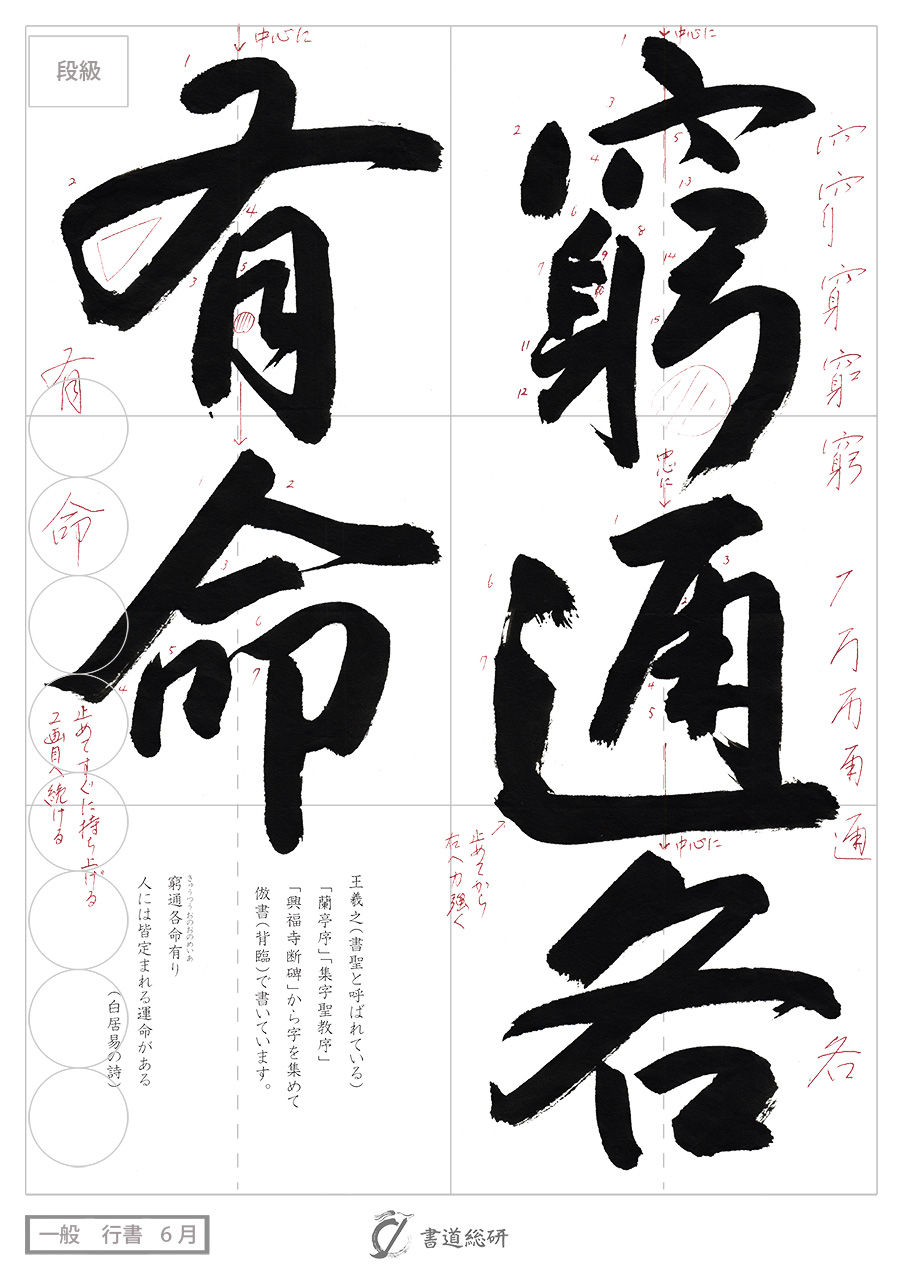 窮通各
有命
段級
中心に
中心に
忠に
中心に
止めてから
右へ力強く
止めてすぐに持ち上げる
2画目へ続ける
窮
通
各
有
命
王羲之(書聖と呼ばれている)
「蘭亭序」「集字聖教序」
「興福寺断碑」から字を集めて
倣書(背臨)で書いています。
きゅうつうおのおのめいあ
窮通各命有り
人には皆定まれる運命がある
(白居易の詩)
一般 行書 6月
書道総研